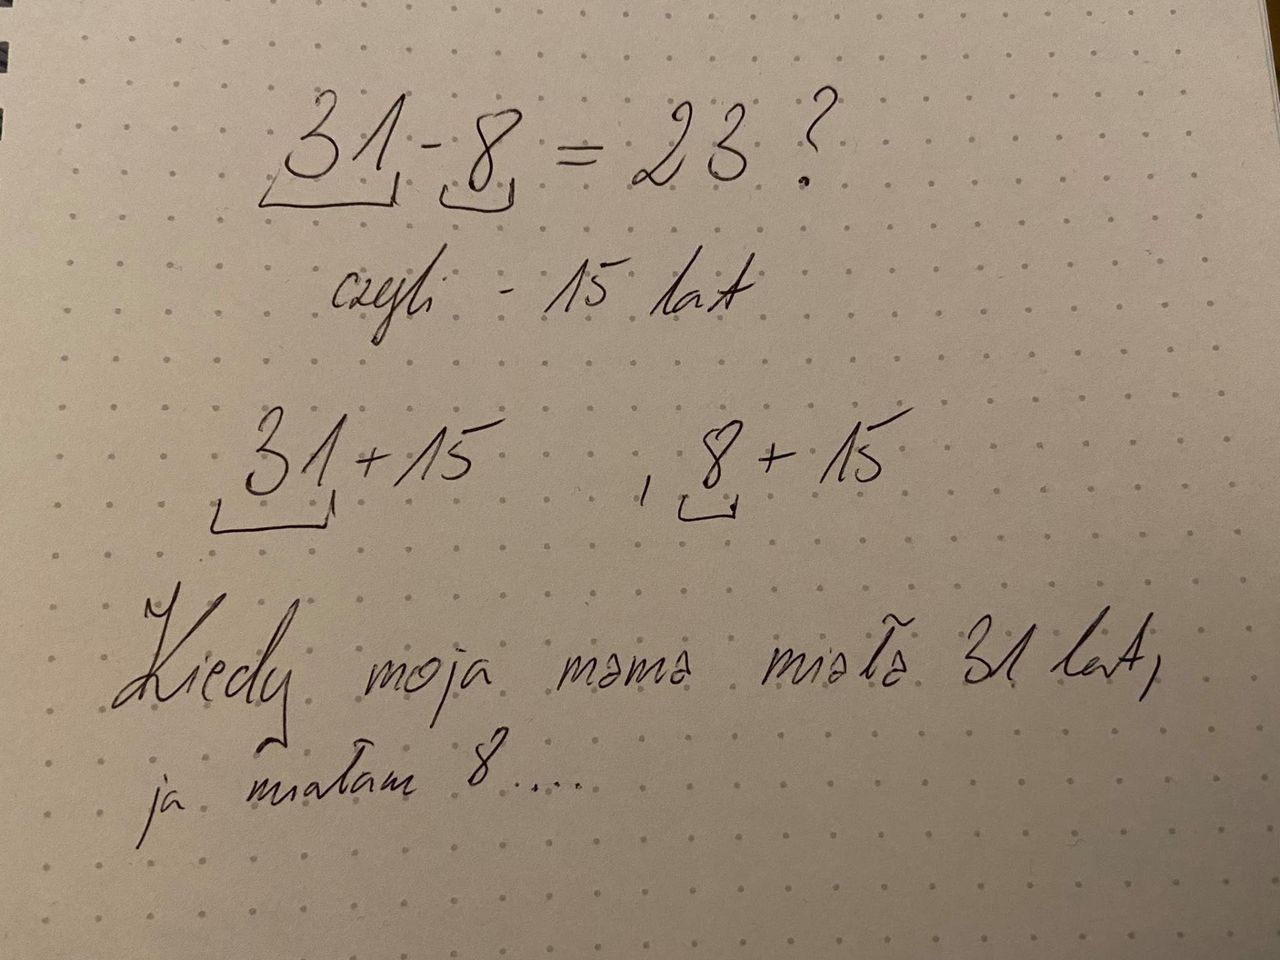 31 - 8 = 23 ?
czyli - 15 lat
31 + 15 , 8 + 15
Kiedy moja mama miała 31 lat,
ja miałam 8....